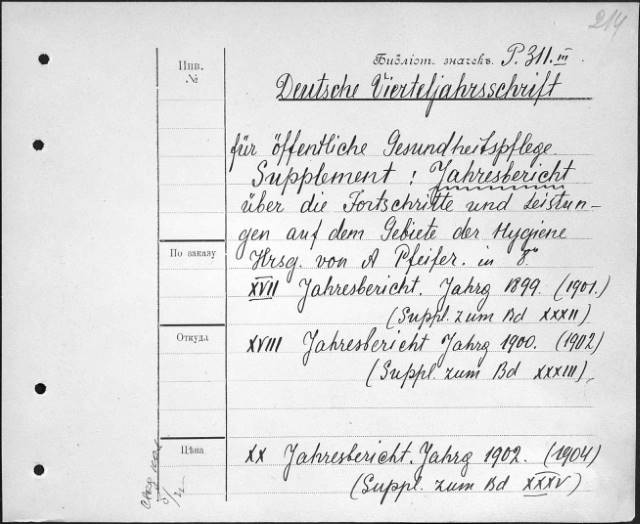 214
Инв.
№
Библіот. значекъ. P. 311. III
Deutsche Vierteljahrsschrift
für öffentliche Gesundheitspflege
Supplement: Jahresbericht
über die Fortschritte und Leistun-
gen auf dem Gebiete der Hygiene
По заказу
Hrsg. von A Pfeifer. in 8°
XVII Jahresbericht. Jahrg 1899. (1901.)
(Suppl. zum Bd XXXII)
Откуда
XVIII Jahresbericht Jahrg 1900. (1902)
(Suppl. zum Bd XXXIII),
Цѣна
XX Jahresbericht. Jahrg 1902. (1904)
(Suppl. zum Bd XXXV)